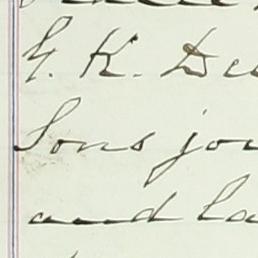 G. K. De
Sons jou
and la